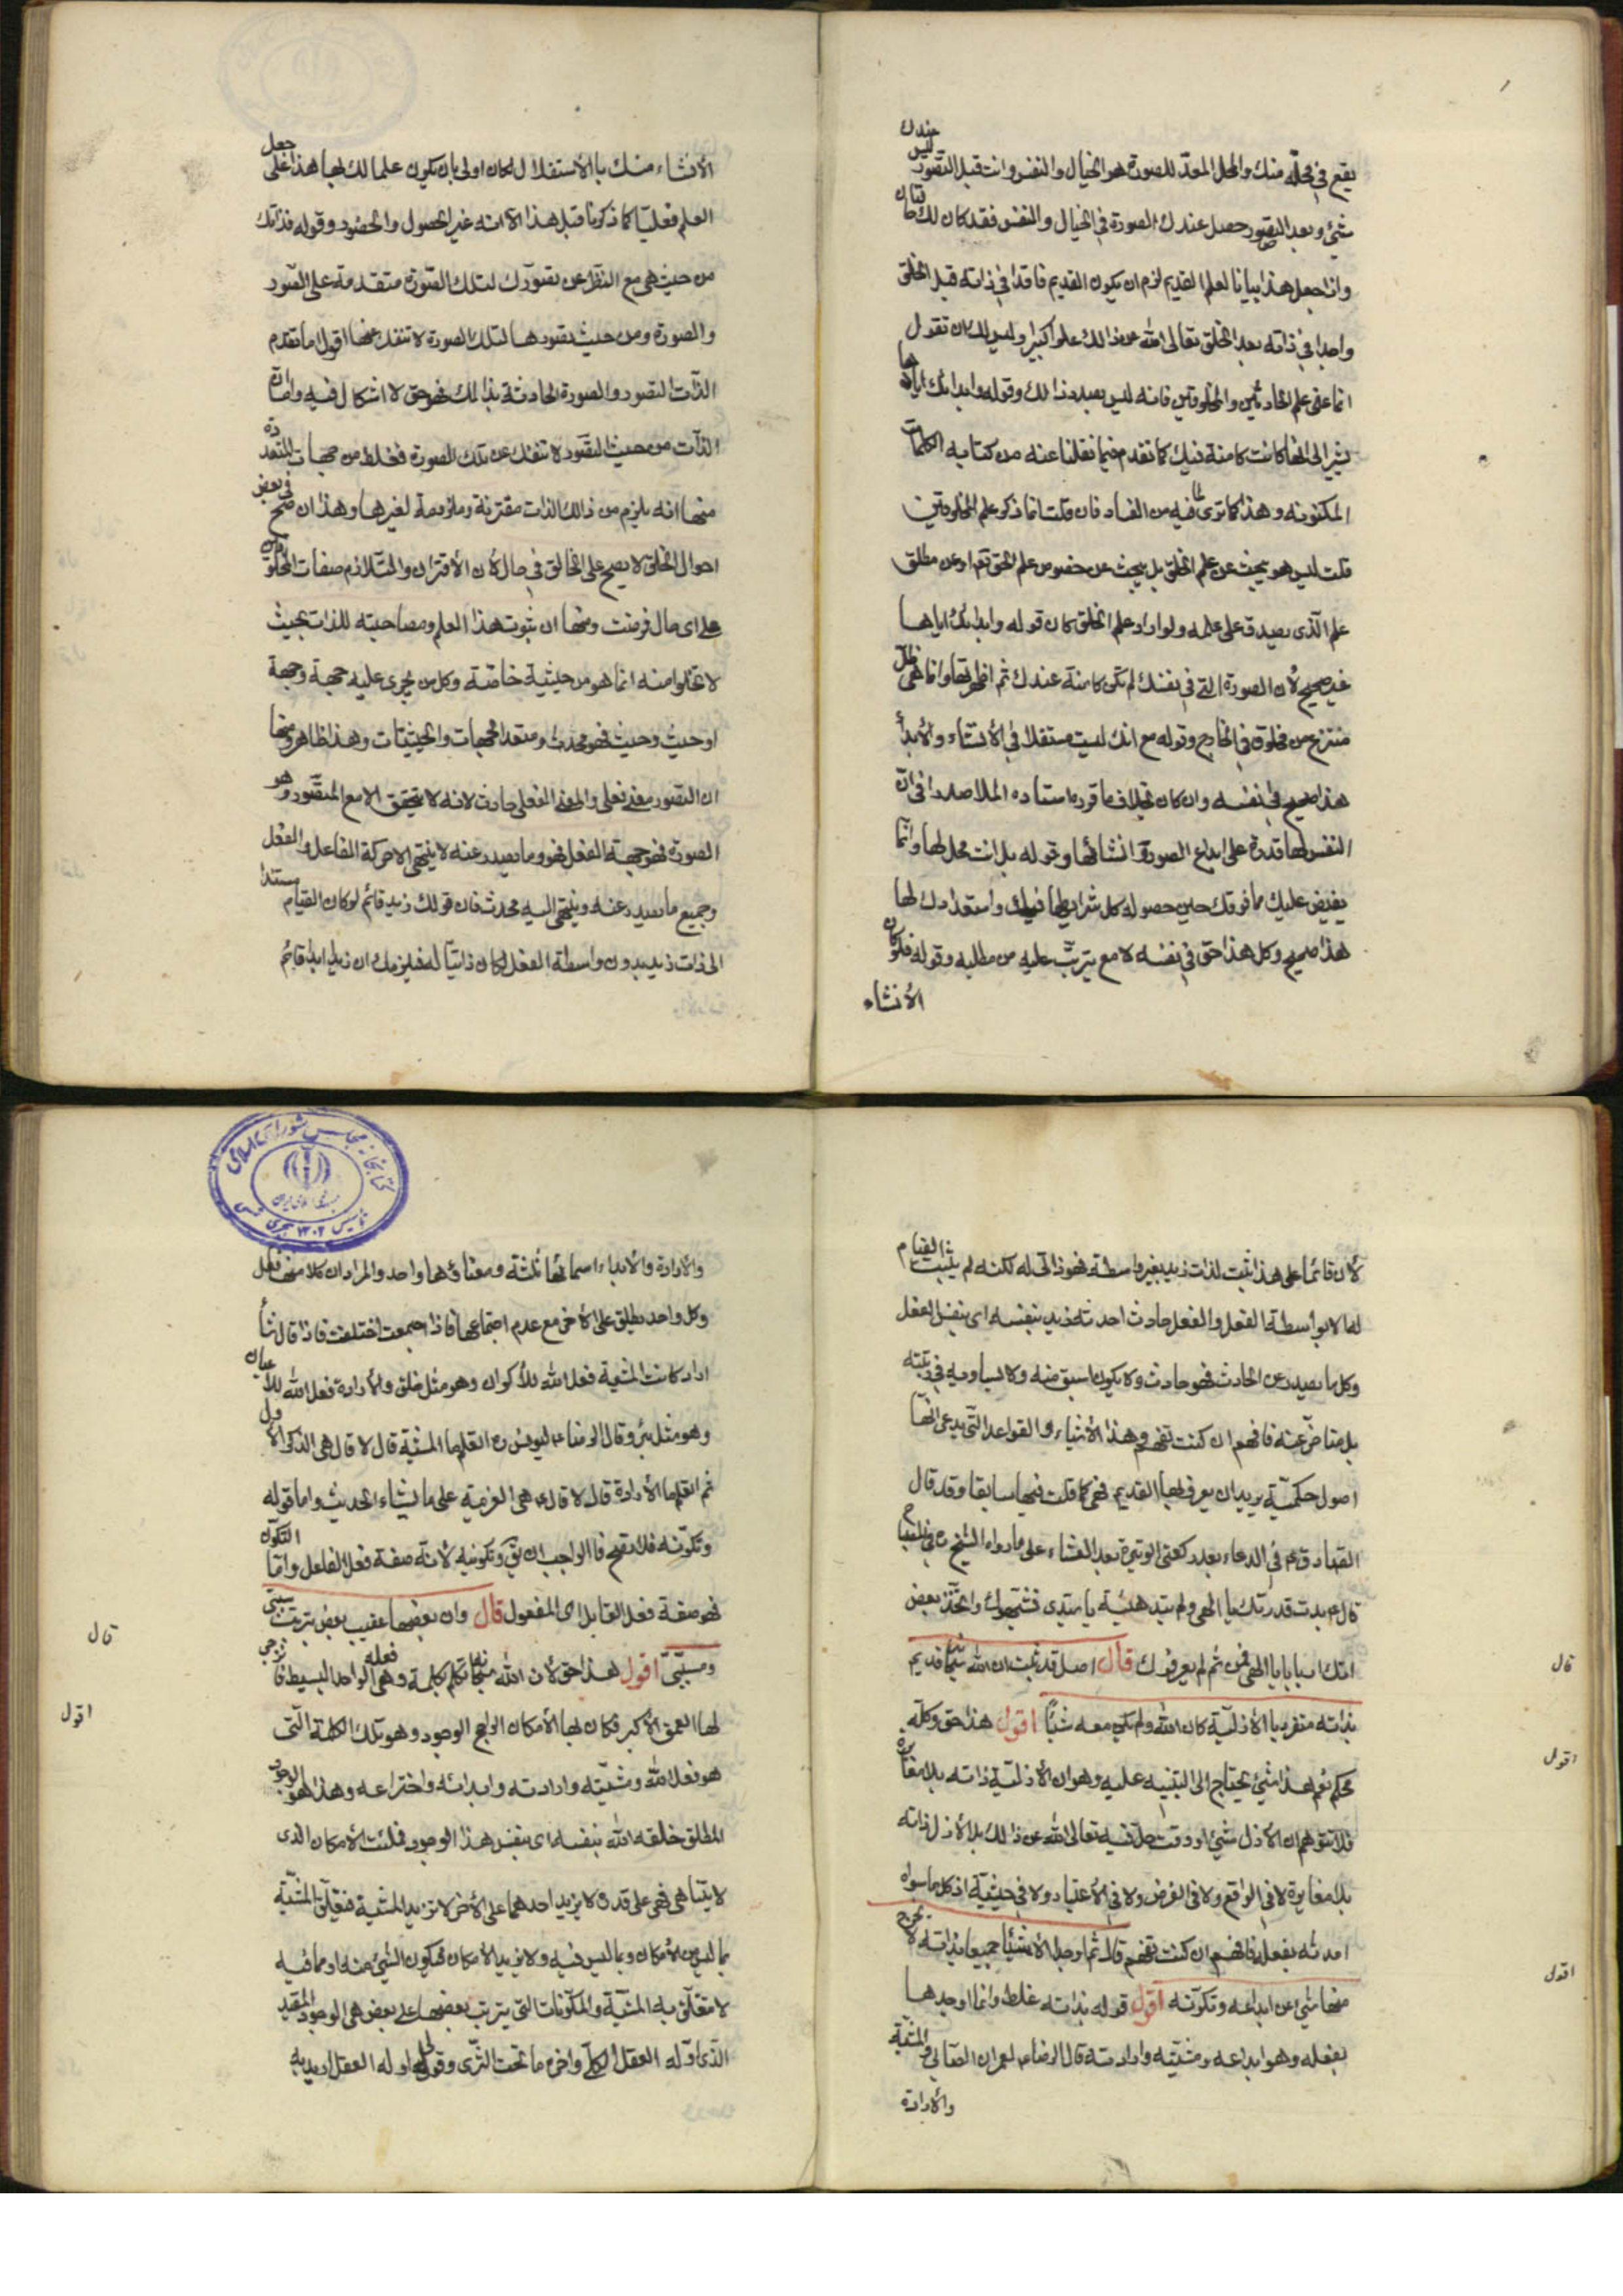 يقع في محلّه منك والمحل المعدّ للصورة هو الخيال والنفس وانت قبل التصور ليس عندك
شيء وبعد التصور حصل عندك الصورة في الخيال والنفس فقد كان لك حالتان
وان جعل هذا بيانا لعلم القديم لزم ان يكون القديم فاقدا في ذاته قبل الخلق
واجدا في ذاته بعد الخلق تعالى الله عن ذالك علوا كبيرا وليس لك ان تقول
انما عنى علم الحادثين والمخلوقين فانه ليس بصدد ذالك وقوله وابدائك اياها
يشير الى انها كانت كامنة فيك كما تقدم فيما نقلنا عنه من كتابه الكلمات
المكنونه وهذا كما ترى فيه من الفساد فان قلت انما ذكر علم المخلوقين
قلت ليس هو يبحث عن علم الخلق بل يبحث عن خصوص علم الحق تعا او عن مطلق
علم الذى يصدق على علمه ولو اراد علم الخلق كان قوله وابدائك اياها
غير صحيح لأن الصورة التي في نفسك لم تكن كامنة عندك ثم اظهرتها وانما هي ظل
منتزع من مخلوق في الخارج وقوله مع انك لست مستقلا في الأنشاء والأبدأ
هذا صحيح في نفسه وان كان بخلاف ما قرره استاده الملا صدرا في ان
النفس لها قدرة على ابداع الصورة وانشائها وقوله بل انت محل لها وانما
يفيض عليك مما فوقك حين حصوله كل شرايطها فيك واستعدادك لها
هذا صحيح وكل هذا حق في نفسه لا مع يترتب عليه من مطلبه وقوله فلو كان
الأنشاء
الأنشاء منك بالأستقلال لكان اولى بان يكون علما لك بها هذا على جعل
العلم فعليّا كما ذكرنا قبل هذا الا انه غير الحصول والحضور وقوله فذاتك
من حيث هى مع النظر عن تصورك لتلك الصورة متقدمة على التصور
والصورة ومن حيث تصورها لتلك الصورة لا تنفك عنها اقول اما تقدم
الذات التصور والصورة الحادثة بذالك فهو حق لا اشكال فيه واما ان
الذات من حيث التصور لا تنفك عن تلك الصورة فغلط من جهات متعددة
منها انه يلزم من ذالك الذات مقترنة وملزومة لغيرها وهذا ان صح في بعض
احوال الخلق لا يصح على الخالق في حال لأن الأقتران والتلازم صفات المخلوق
على اى حال فرضت ومنها ان ثبوت هذا العلم ومصاحبته للذات بحيث
لا تخلوا منه انما هو من حيثية خاصة وكل من يجرى عليه جهة وجهة
او حيث وحيث فهو محدث ومتعدد الجهات والحيثيات وهذا ظاهر ومنها
ان التصور معنى فعلى والمعنى الفعلى حادث لانه لا يتحقق الا مع المتصور وهو
الصورة فهو جهة الفعل فهو وما يصدر عنه لا ينتهى الا حركة الفاعل والفعل
وجميع ما يصدر عنه وينتهى اليه محدث فان قولك زيد قائم لو كان القيام مستندا
الى ذات زيد بدون واسطة الفعل لكان ذاتيا له فيلزمك ان زيد ابدا قائم
لأن قائما على هذا يثبت لذات زيد بغير واسطة فهو ذاتى له لكنه لم يثبت القيام
لها الا بواسطة الفعل والفعل حادث احدثه زيد بنفسه اى بنفس الفعل
وكل ما يصدر عن الحادث فهو حادث ولا يكون اسبق منه ولا يساويه في رتبته
بل متاخر عنه فافهم ان كنت تفهم وهذا الأشياء والقواعد التى يدعى انها
اصول حكميّة يريد ان يعرف بها القديم فهى كما قلت فيها سابقا وقد قال
الصادق ع في الدعاء بعد ركعتى الوتيرة بعد العشاء على ما رواه الشيخ في المصباح
قال ع بدت قدرتك يا الهى ولم تبد هيئة يا سيدى فشبهوك واتخذ بعض
اياتك اربابا يا الهى فمن ثم لم يعرفوك قال اصل قد ثبت ان الله سبحانه قديم
بذاته متفرد بالأزلية كان الله ولم يكن معه شيئا اقول هذا حق وكله
محكم نعم هذا شيء يحتاج الى التنبيه عليه وهو ان الأزلية ذاته بلا مغايرة
فلا تتوهم ان الأزل شيء او وقت حل فيه تعالى الله عن ذالك بل الأزل ذاته
بلا مغايرة لا في الواقع ولا في الفرض ولا في الأعتبار ولا في حيثيّة اذ كل ما سواه
احدثه بفعله فافهم ان كنت تفهم قال ثم اوجد الأشياء جميعا بذاته لا يخرج
منها شيء عن ابداعه وتكونه اقول قوله بذاته غلط وانما اوجدها
بفعله وهو ابداعه ومشيّته وارادته قال الرضا ع لعمران الصابى والمشية
والأرادة
قال
اقول
اقول
والأرادة والأبداع اسمائها ثلثة ومعناها واحد والمراد ان كلا منها فعل
وكل واحد يطلق على الأخر مع عدم اجتماعها فاذا اجتمعت اختلفت فاذا قال شأ
اراد كانت المشية فعل الله للأكوان وهو مثل خلق والأرادة فعل الله للأعيان
وهو مثل برء وقال الرضا ع ليونس ره اتعلم ما المشية قال لا قال هى الذكر الأول
ثم اتعلم ما الأرادة قال لا قال ع هى العزيمة على ما يشاء الحديث واما قوله
وتكونه فلا يصح فالواجب ان يق وتكوينه لأنه صفة فعل الفاعل واما التكون
فهو صفة فعل القابل اى المفعول قال وان بعضها عقيب بعض بترتيب سببى
ومسببى اقول هذا حق لأن الله سبحانه تكلم بكلمة وهى فعله الواحد البسيط
لها العمق الأكبر فكان بها الأمكان الراجح الوجود وهو تلك الكلمة التى
هو فعل الله ومشيّته وارادته وابدائه واختراعه وهذا هو الوجود
المطلق خلقه الله بنفسه اى بنفس هذا الوجود فملئت الأمكان الذى
لا يتناهى فهى على قدره لا يزيد احدهما على الأخر لا تزيد المشية فتعلق المشية
بما ليس الأمكان وبما ليس فيه ولا يزيد الأمكان فيكون الشيء منه او مما فيه
لا متعلق به المشية والمكونات التى يترتب بعضها على بعض هى الوجود المقيد
الذى اوله العقل الكلى واخره ما تحت الثرى وقولى اوله العقل اريد به
قال
اقول
كتابخانه مجلس شوراى اسلامى
تاسيس ١٣٠٢ هجرى شمسى